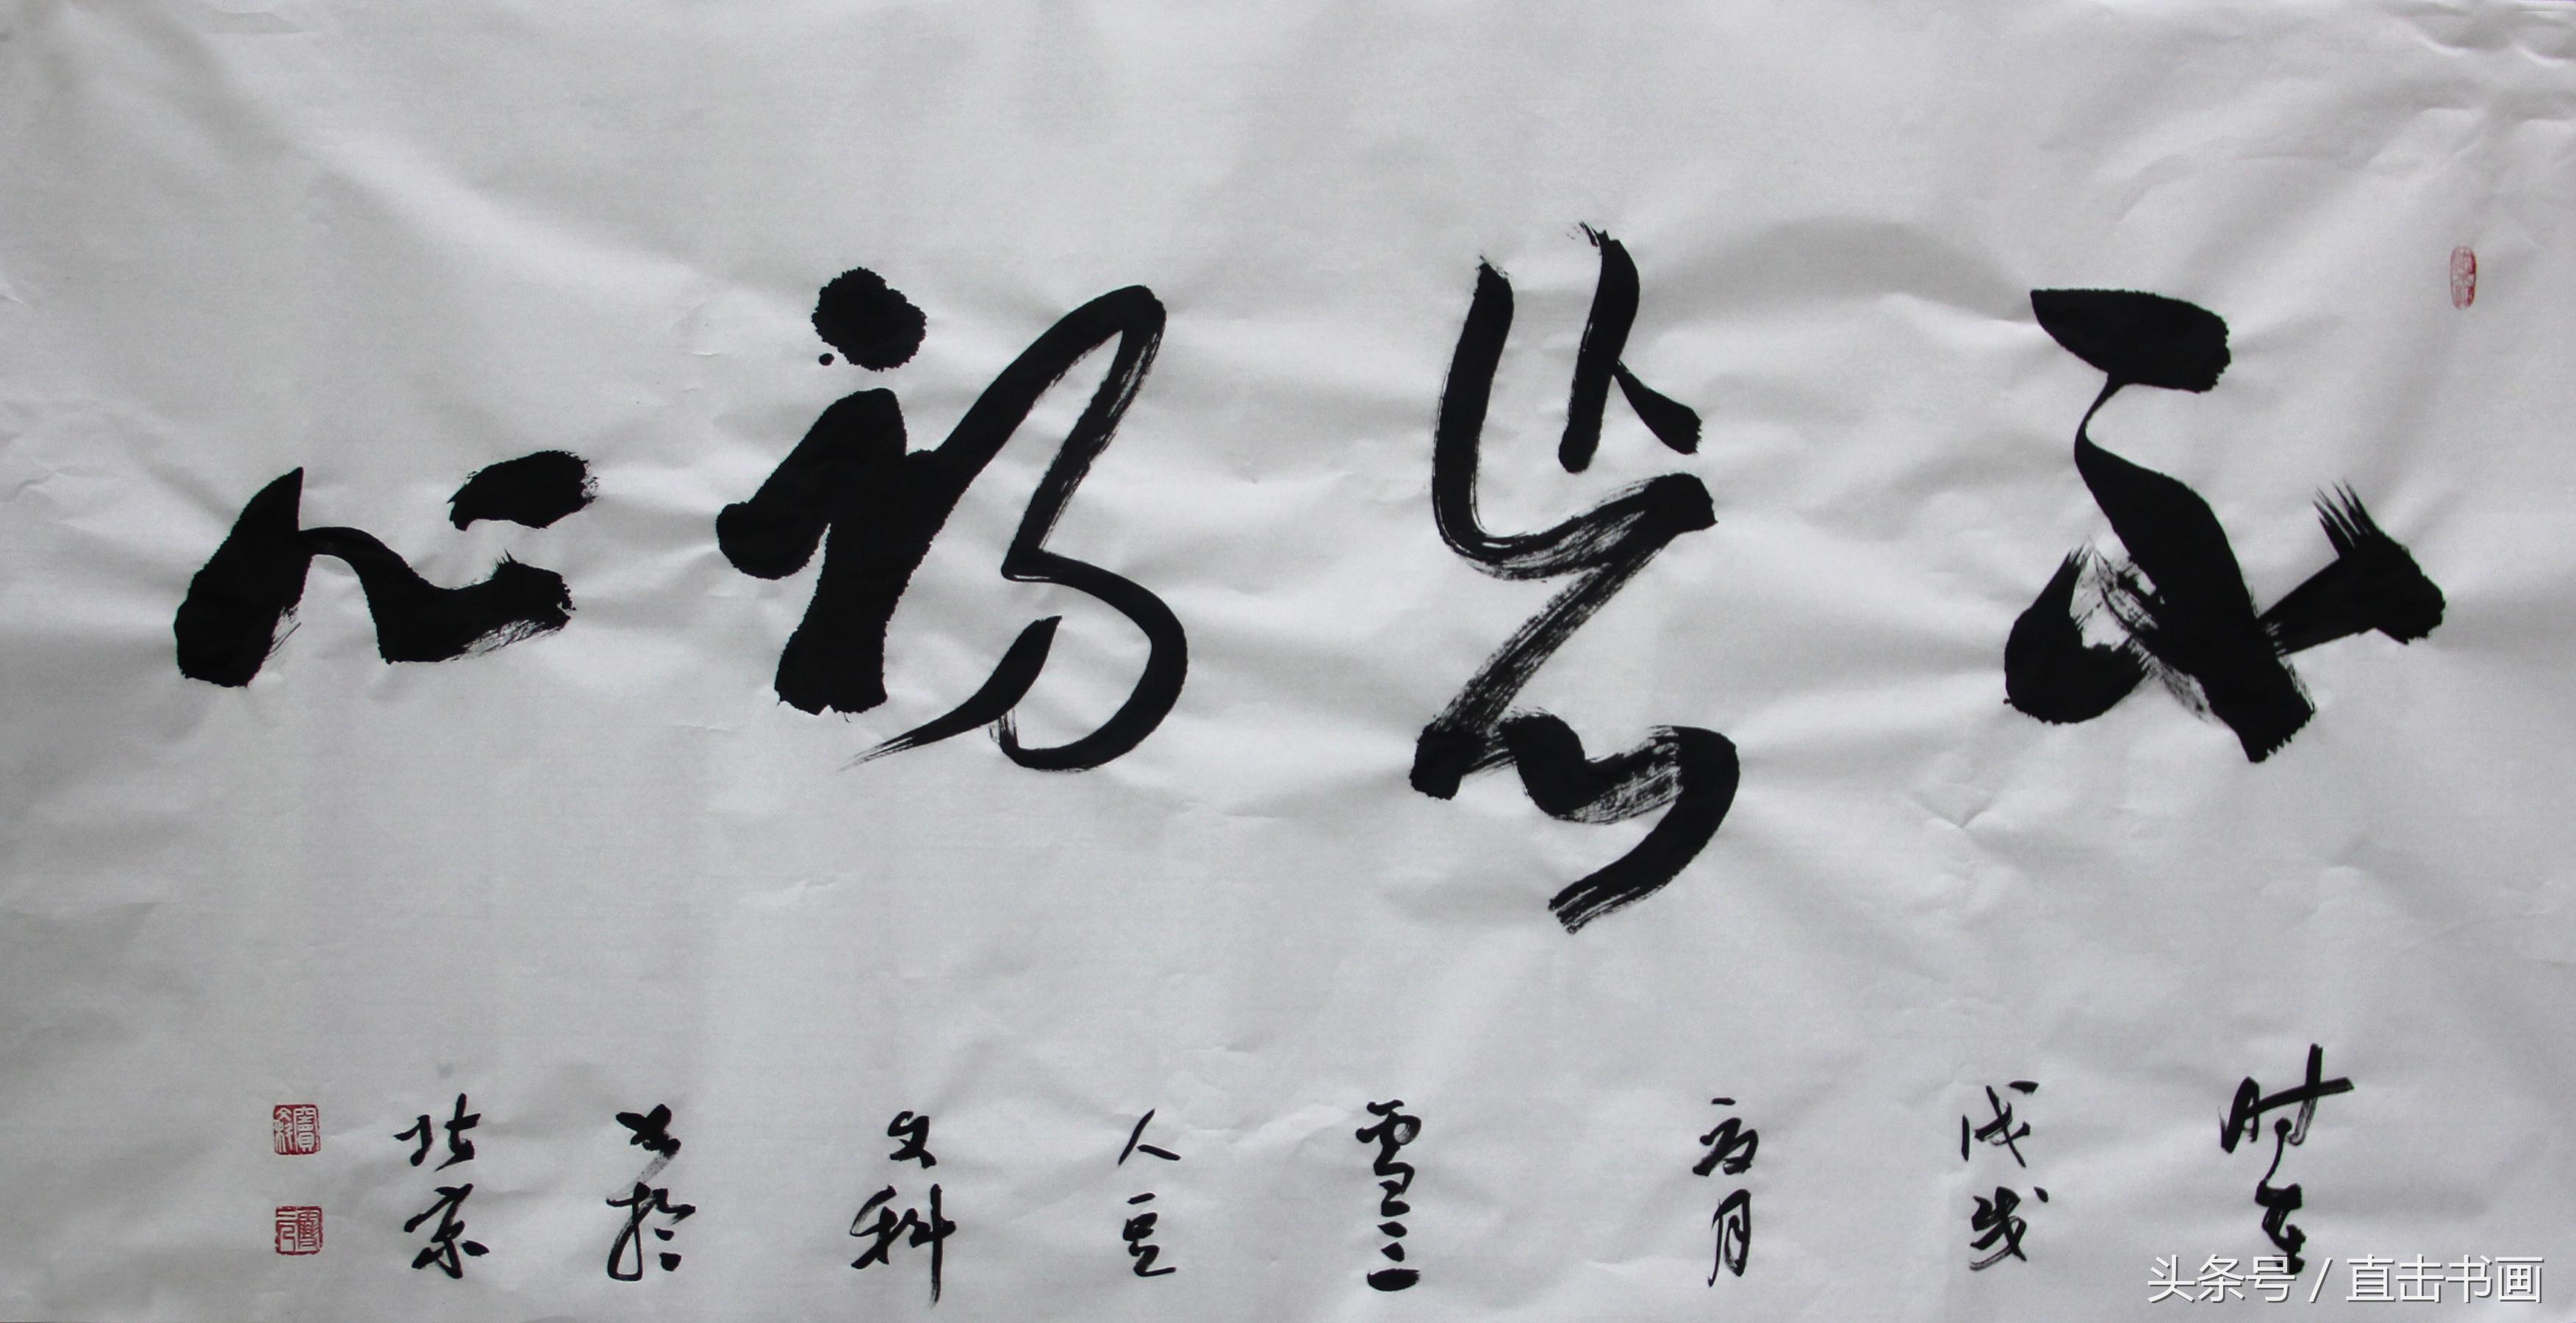 不忘初心
时在
戊戌
夏月
雪
人豆
文科
书於
北京
头条号 / 直击书画